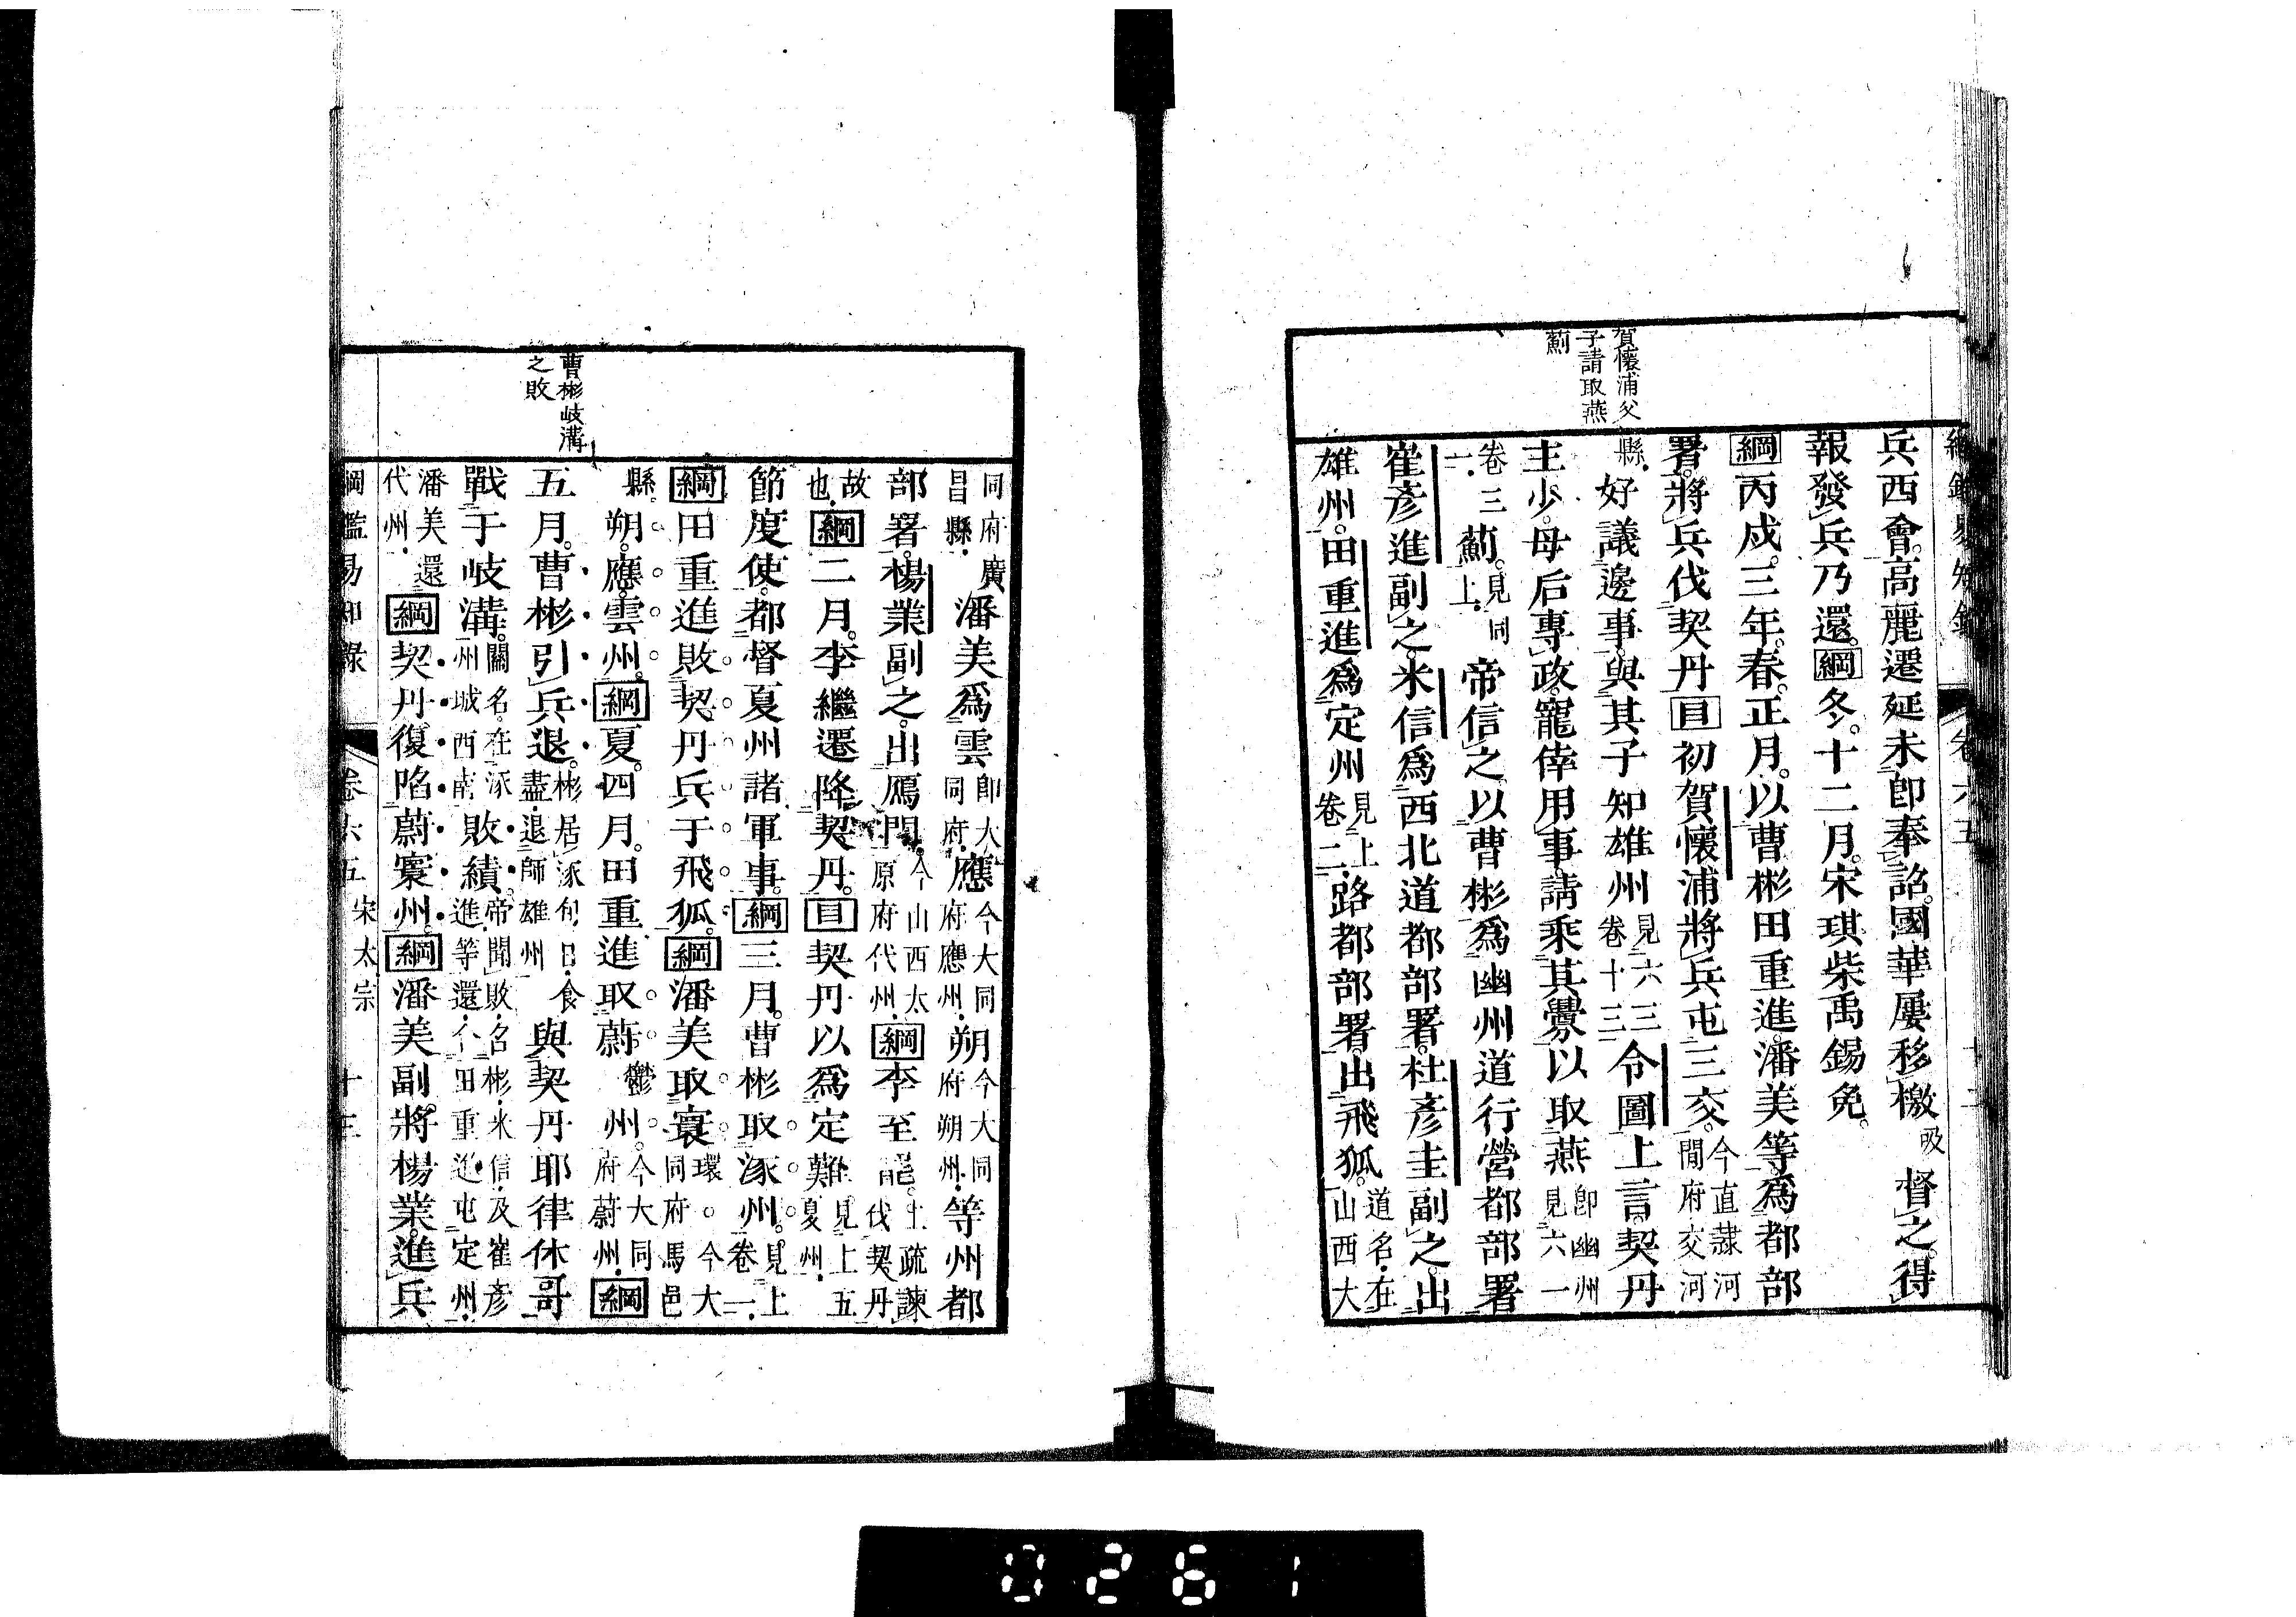 賀懷浦父
子請取燕
薊
兵西會。高麗遷延未卽奉詔。國華屢移檄吸督之。得
報發兵乃還。綱冬。十二月。宋琪柴禹錫免。
綱丙戌。三年。春。正月。以曹彬田重進潘美等爲都部
署。將兵伐契丹目初賀懷浦將兵屯三交。今直隷河間府交河
縣。好議邊事。與其子知雄州見六三卷十三令圖上言。契丹
主少。母后專政。寵倖用事。請乘其釁以取燕卽幽州見六一
卷三一。薊。見同上。帝信之。以曹彬爲幽州道行營都部署
崔彥進副之。米信爲西北道都部署。杜彥圭副之。出
雄州。田重進爲定州見上卷二。路都部署。出飛狐。道名。在山西大
卷六五
曹彬岐溝
之敗
同府廣昌縣。潘美爲雲卽大同府。應今大同府應州。朔今大同府朔州。等州都
部署。楊業副之。出鴈門。今山西太原府代州。綱李至罷。上疏諫伐契丹
故也。綱二月。李繼遷降契丹。目契丹以爲定難。見上五夏州。
節度使。都督夏州諸軍事。綱三月。曹彬取涿州。見上卷一。
綱田重進敗契丹兵于飛狐。綱潘美取寰環。今大同府馬邑
縣。朔。應。雲州。綱夏。四月。田重進取蔚鬱。州。今大同府蔚州。綱
五月。曹彬引兵退。彬居涿旬日。食盡。退師雄州與契丹耶律休哥
戰于岐溝。關名。在涿州城西南敗績。帝聞敗。召彬。米信。及崔彥進等還。令田重進屯定州。
潘美還代州。綱契丹復陷蔚寰州。綱潘美副將楊業。進兵
綱鑑易知錄 卷六五 宋太宗 十三
0261